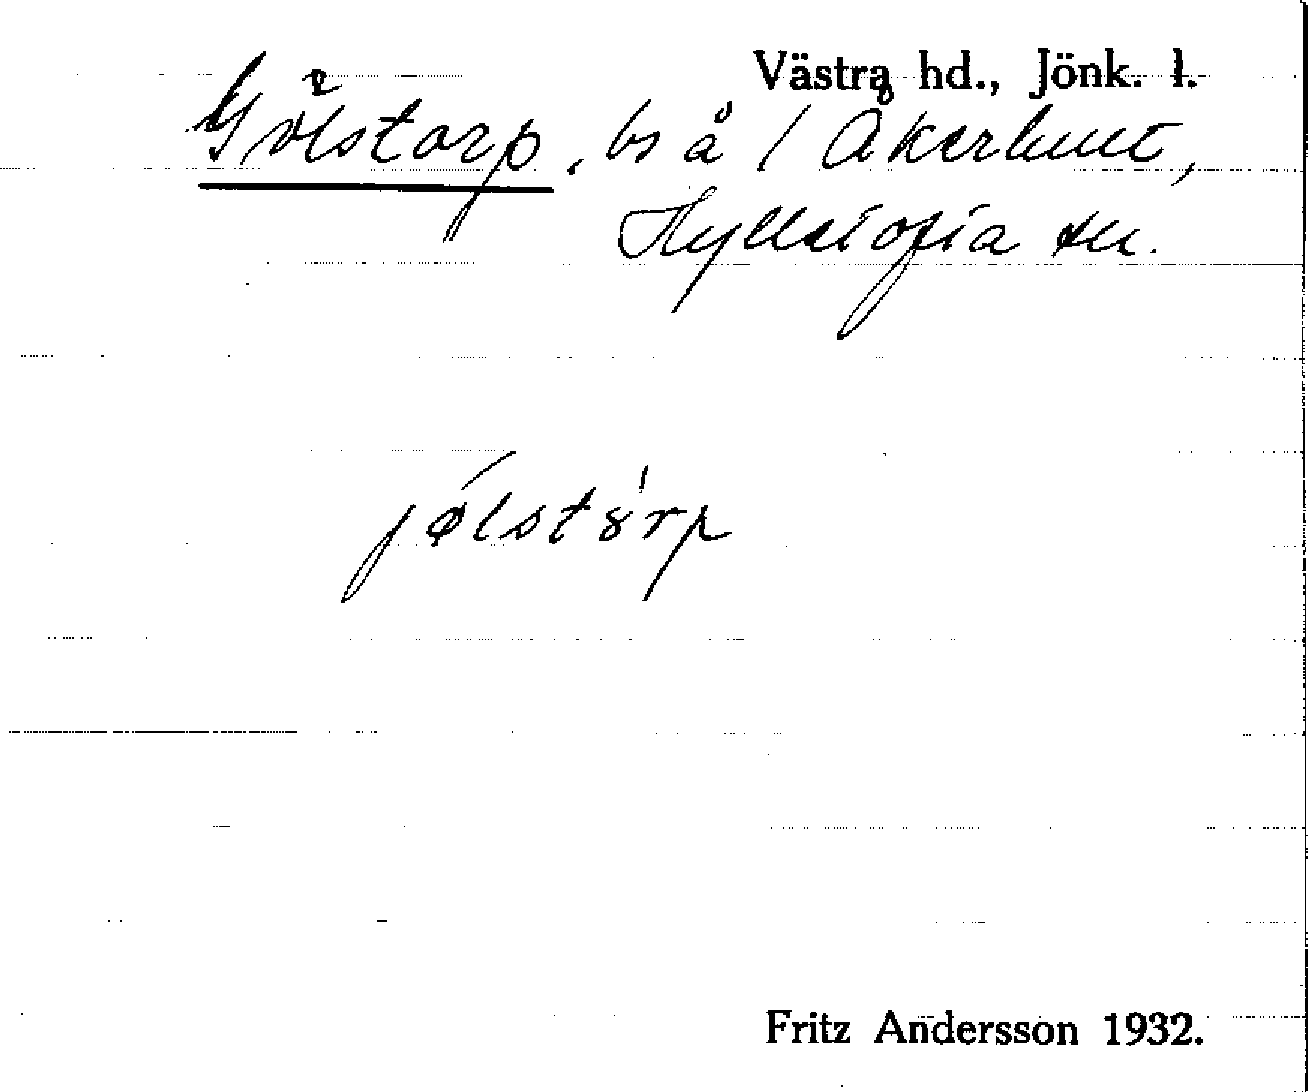 Västra hd., Jönk. l.
Gölstorp, bs å / Åkerlunt,
Hyllstofta sn.
jølstórp
Fritz Andersson 1932.